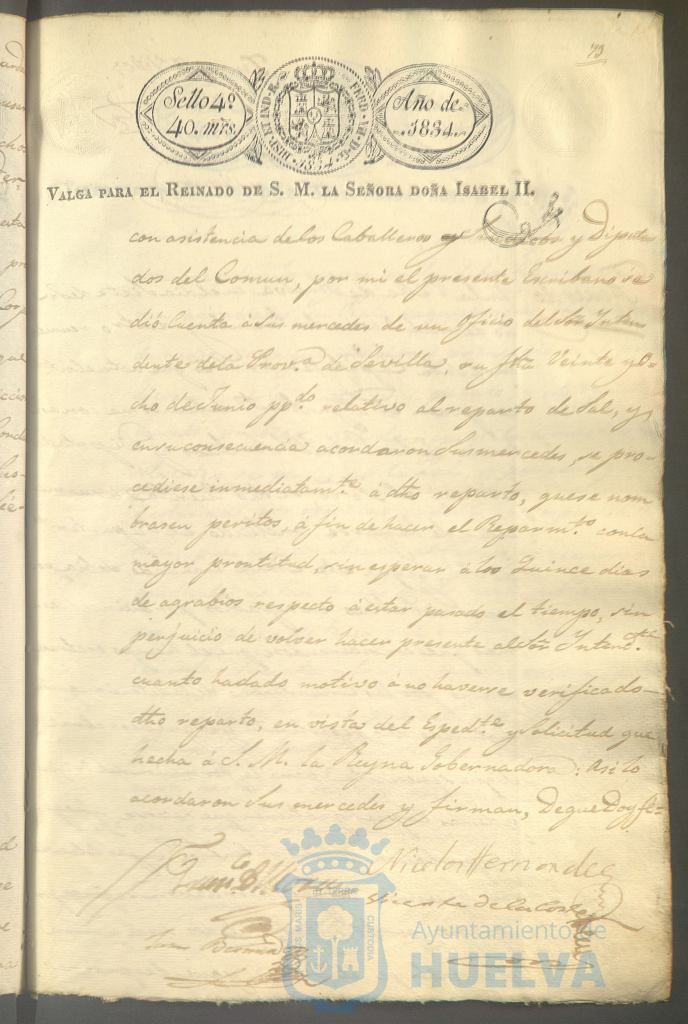 79
Sello 4º
40. mrs.
HISP. ET IND. R. FERD. VII. D. G. 1834
Año de
1834.
VALGA PARA EL REINADO DE S. M. LA SEÑORA DOÑA ISABEL II.
con asistencia de los Caballeros y Diputa
dos del Comun, por mi el presente Escribano se
dió Cuenta á Sus mercedes de un Oficio del Sor. Inten
dente de la Prova. de Sevilla, su fha Veinte y o-
cho de Junio ppdo. relativo al reparto de Sal, y
en su consecuencia acordaron Sus mercedes, se pro-
cediese inmediatamte. á dho reparto, que se nom
brasen peritos, á fin de hacer el Reparmto. con la
mayor prontitud, sin esperar á los Quince dias
de agrabios respecto á estar pasado el tiempo, sin
perjuicio de volver hacer presente al Sor. Intendte.
cuanto ha dado motivo á no haverse verificado
dho reparto, en vista del Espedte. y Solicitud que
hecha á S. M. la Reyna Gobernadora: Asi lo
acordaron Sus mercedes y firman, De que Doy fé=
Nicolas Hernandez
Franco.
Vicente de la Corte
Ayuntamiento de
HUELVA
MARIS
TERRE
CUSTODIA